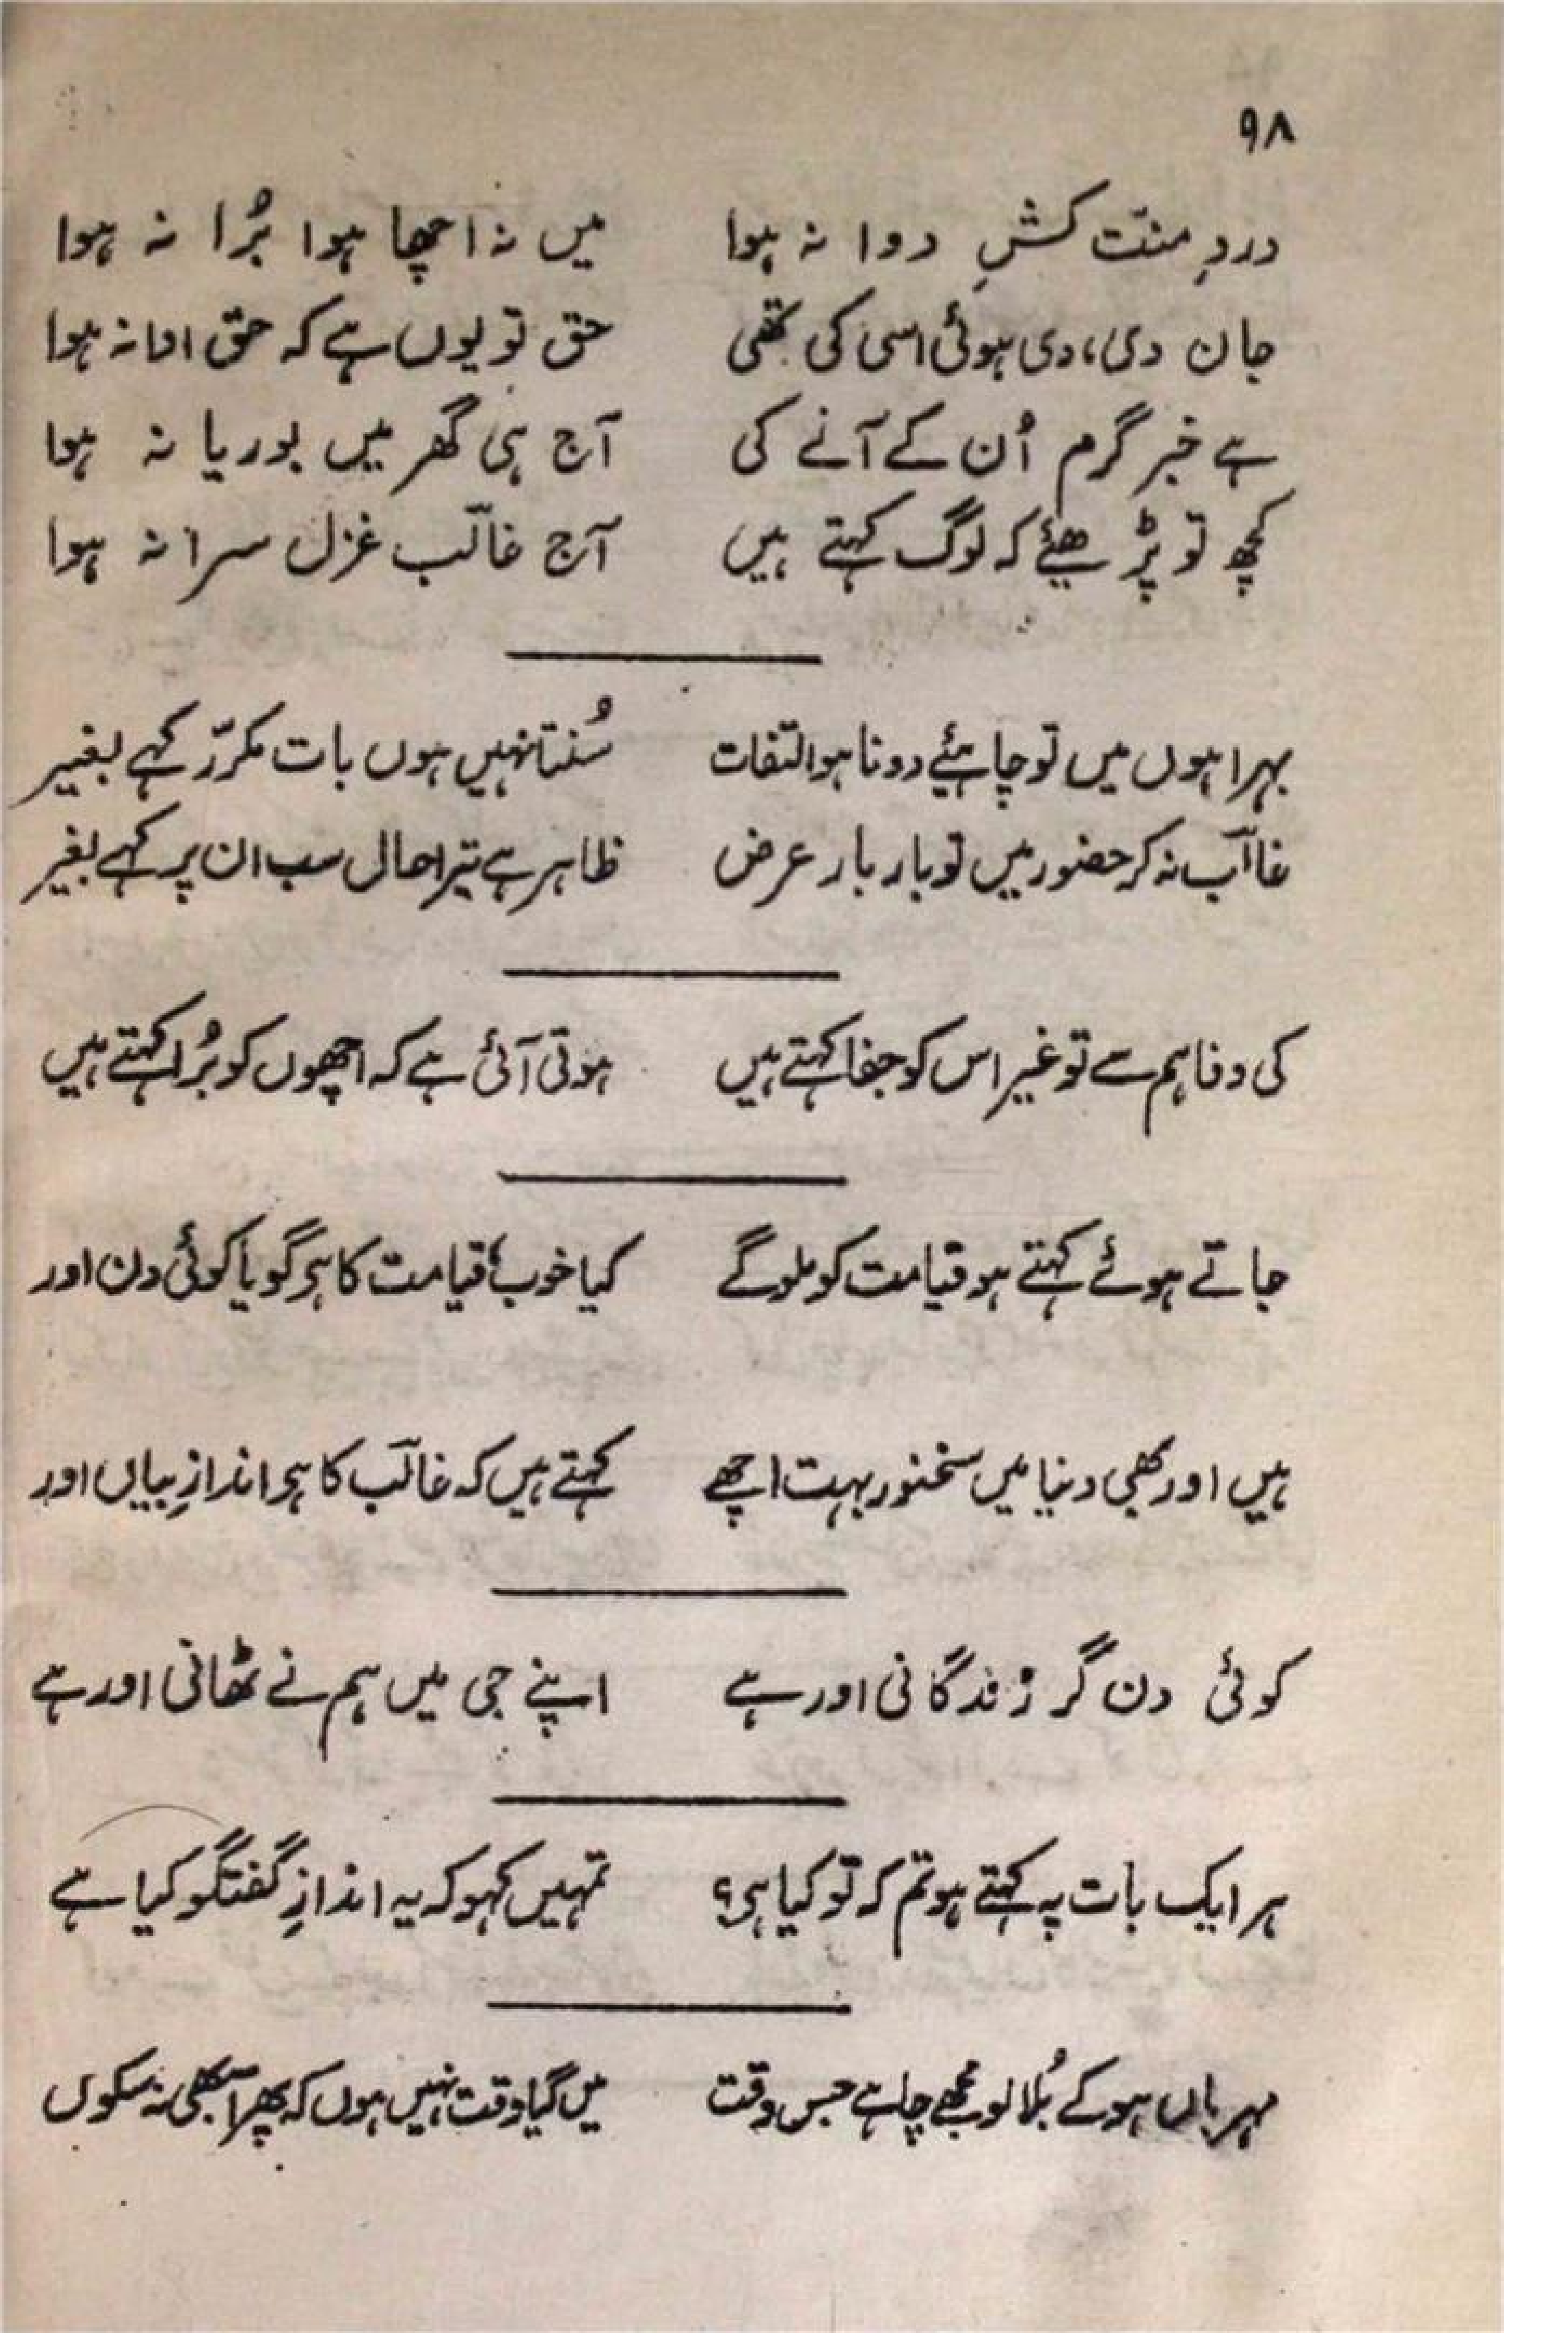 ۹۸
دردِ منّت کشِ دوا نہ ہوا میں نہ اچھا ہوا بُرا نہ ہوا
جان دی، دی ہوئی اسی کی تھی حق تو یوں ہے کہ حق ادا نہ ہوا
ہے خبر گرم اُن کے آنے کی آج ہی گھر میں بوریا نہ ہوا
کچھ تو پڑھیئے کہ لوگ کہتے ہیں آج غالب غزل سرا نہ ہوا
بہرا ہوں میں تو چاہئیے دونا ہو التفات سُنتا نہیں ہوں بات مکرّر کہے بغیر
غالب نہ کر حضور میں تو بار بار عرض ظاہر ہے تیرا حال سب ان پر کہے بغیر
کی وفا ہم سے تو غیر اس کو جفا کہتے ہیں ہوتی آئی ہے کہ اچھوں کو بُرا کہتے ہیں
جاتے ہوئے کہتے ہو قیامت کو ملو گے کیا خوب، قیامت کا ہی گویا کوئی دن اور
ہیں اور بھی دنیا میں سخنور بہت اچھے کہتے ہیں کہ غالب کا ہی اندازِ بیاں اور
کوئی دن گر زندگانی اور ہے اپنے جی میں ہم نے ٹھانی اور ہے
ہر ایک بات پہ کہتے ہو تم کہ تو کیا ہی؟ تمہیں کہو کہ یہ اندازِ گفتگو کیا ہے
مہرباں ہو کے بُلا لو مجھے چاہے جس وقت میں گیا وقت نہیں ہوں کہ پھر آ بھی نہ سکوں